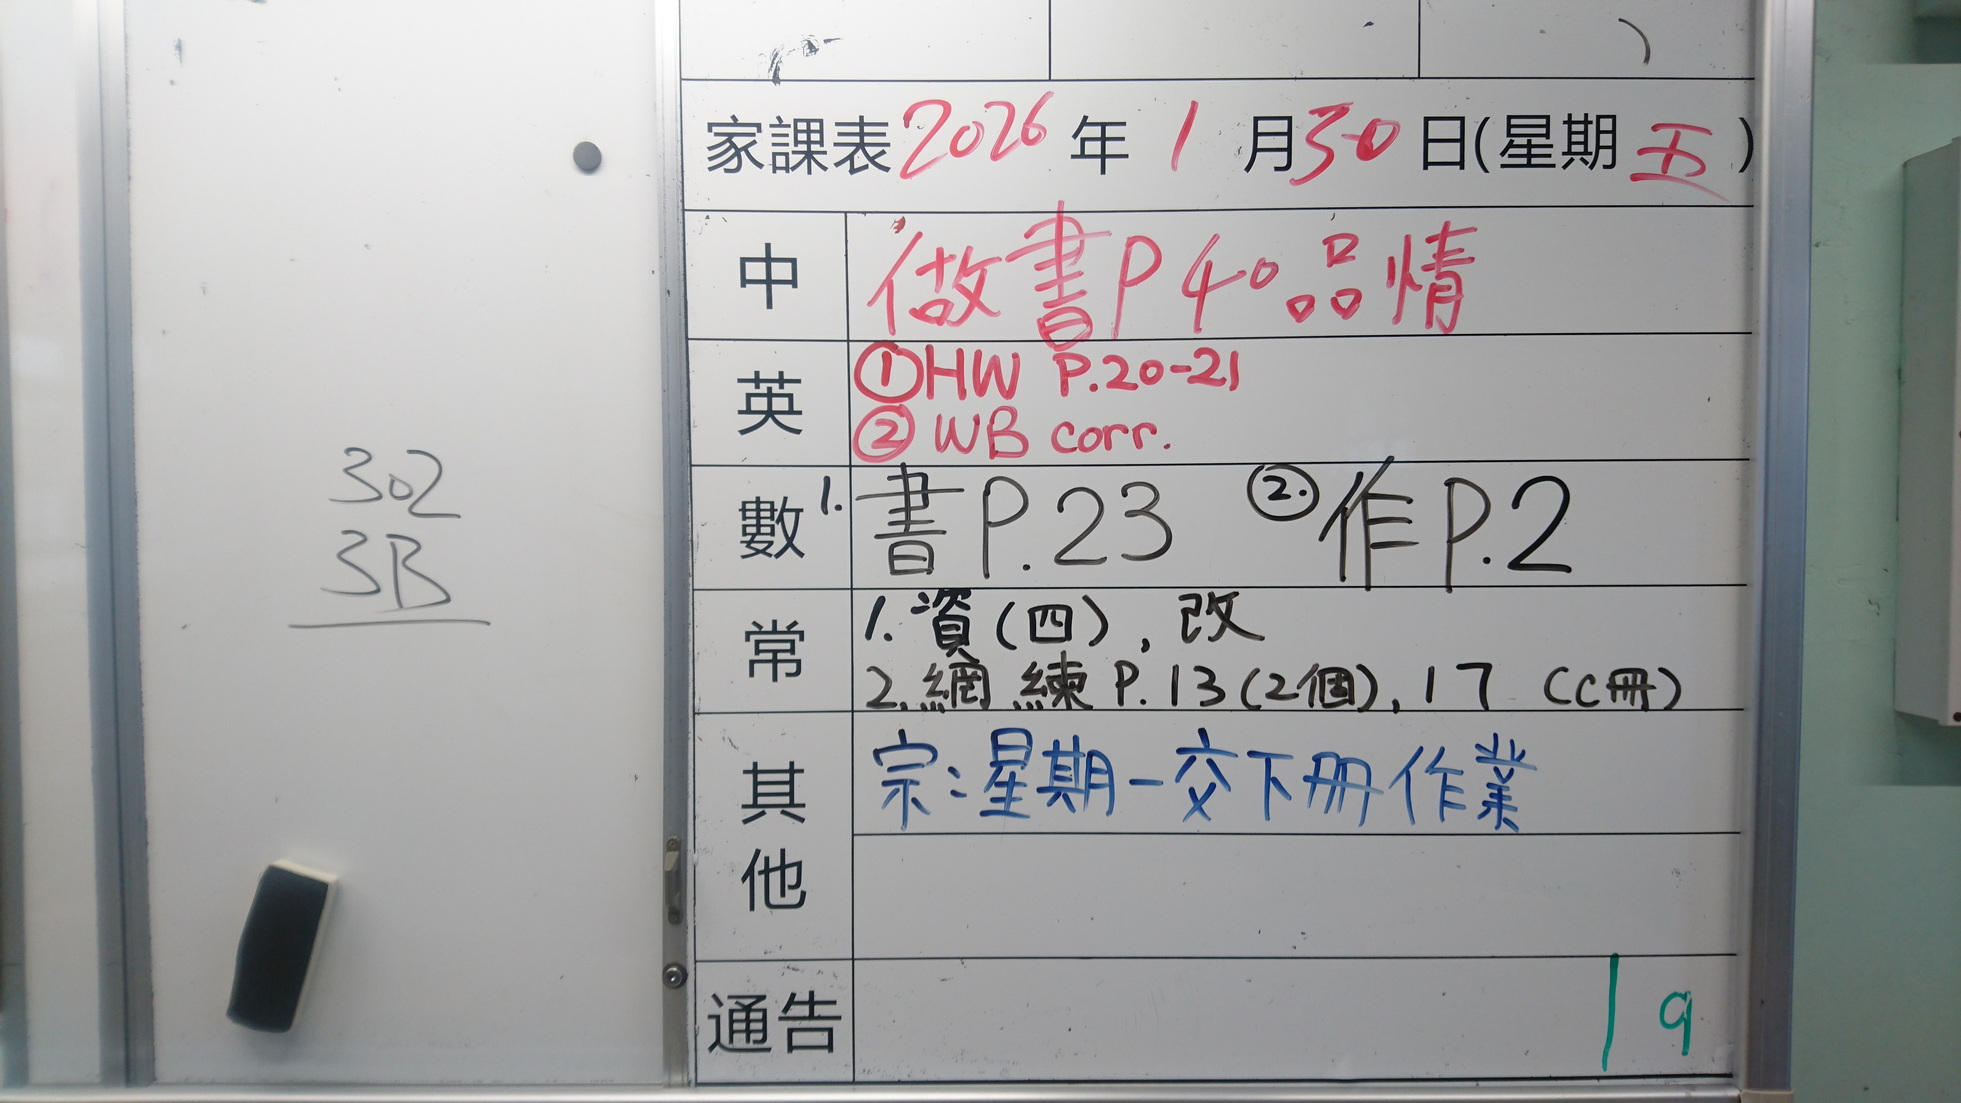 302
3B
家課表2026年1月30日(星期五)
中 做書P40品情
英 ①HW P.20-21
② WB corr.
數 1. 書P.23 ②.作P.2
常 1. 資(四), 改
2. 網練P.13(2個), 17 (C冊)
其他 宗:星期一交下冊作業
通告 | 9